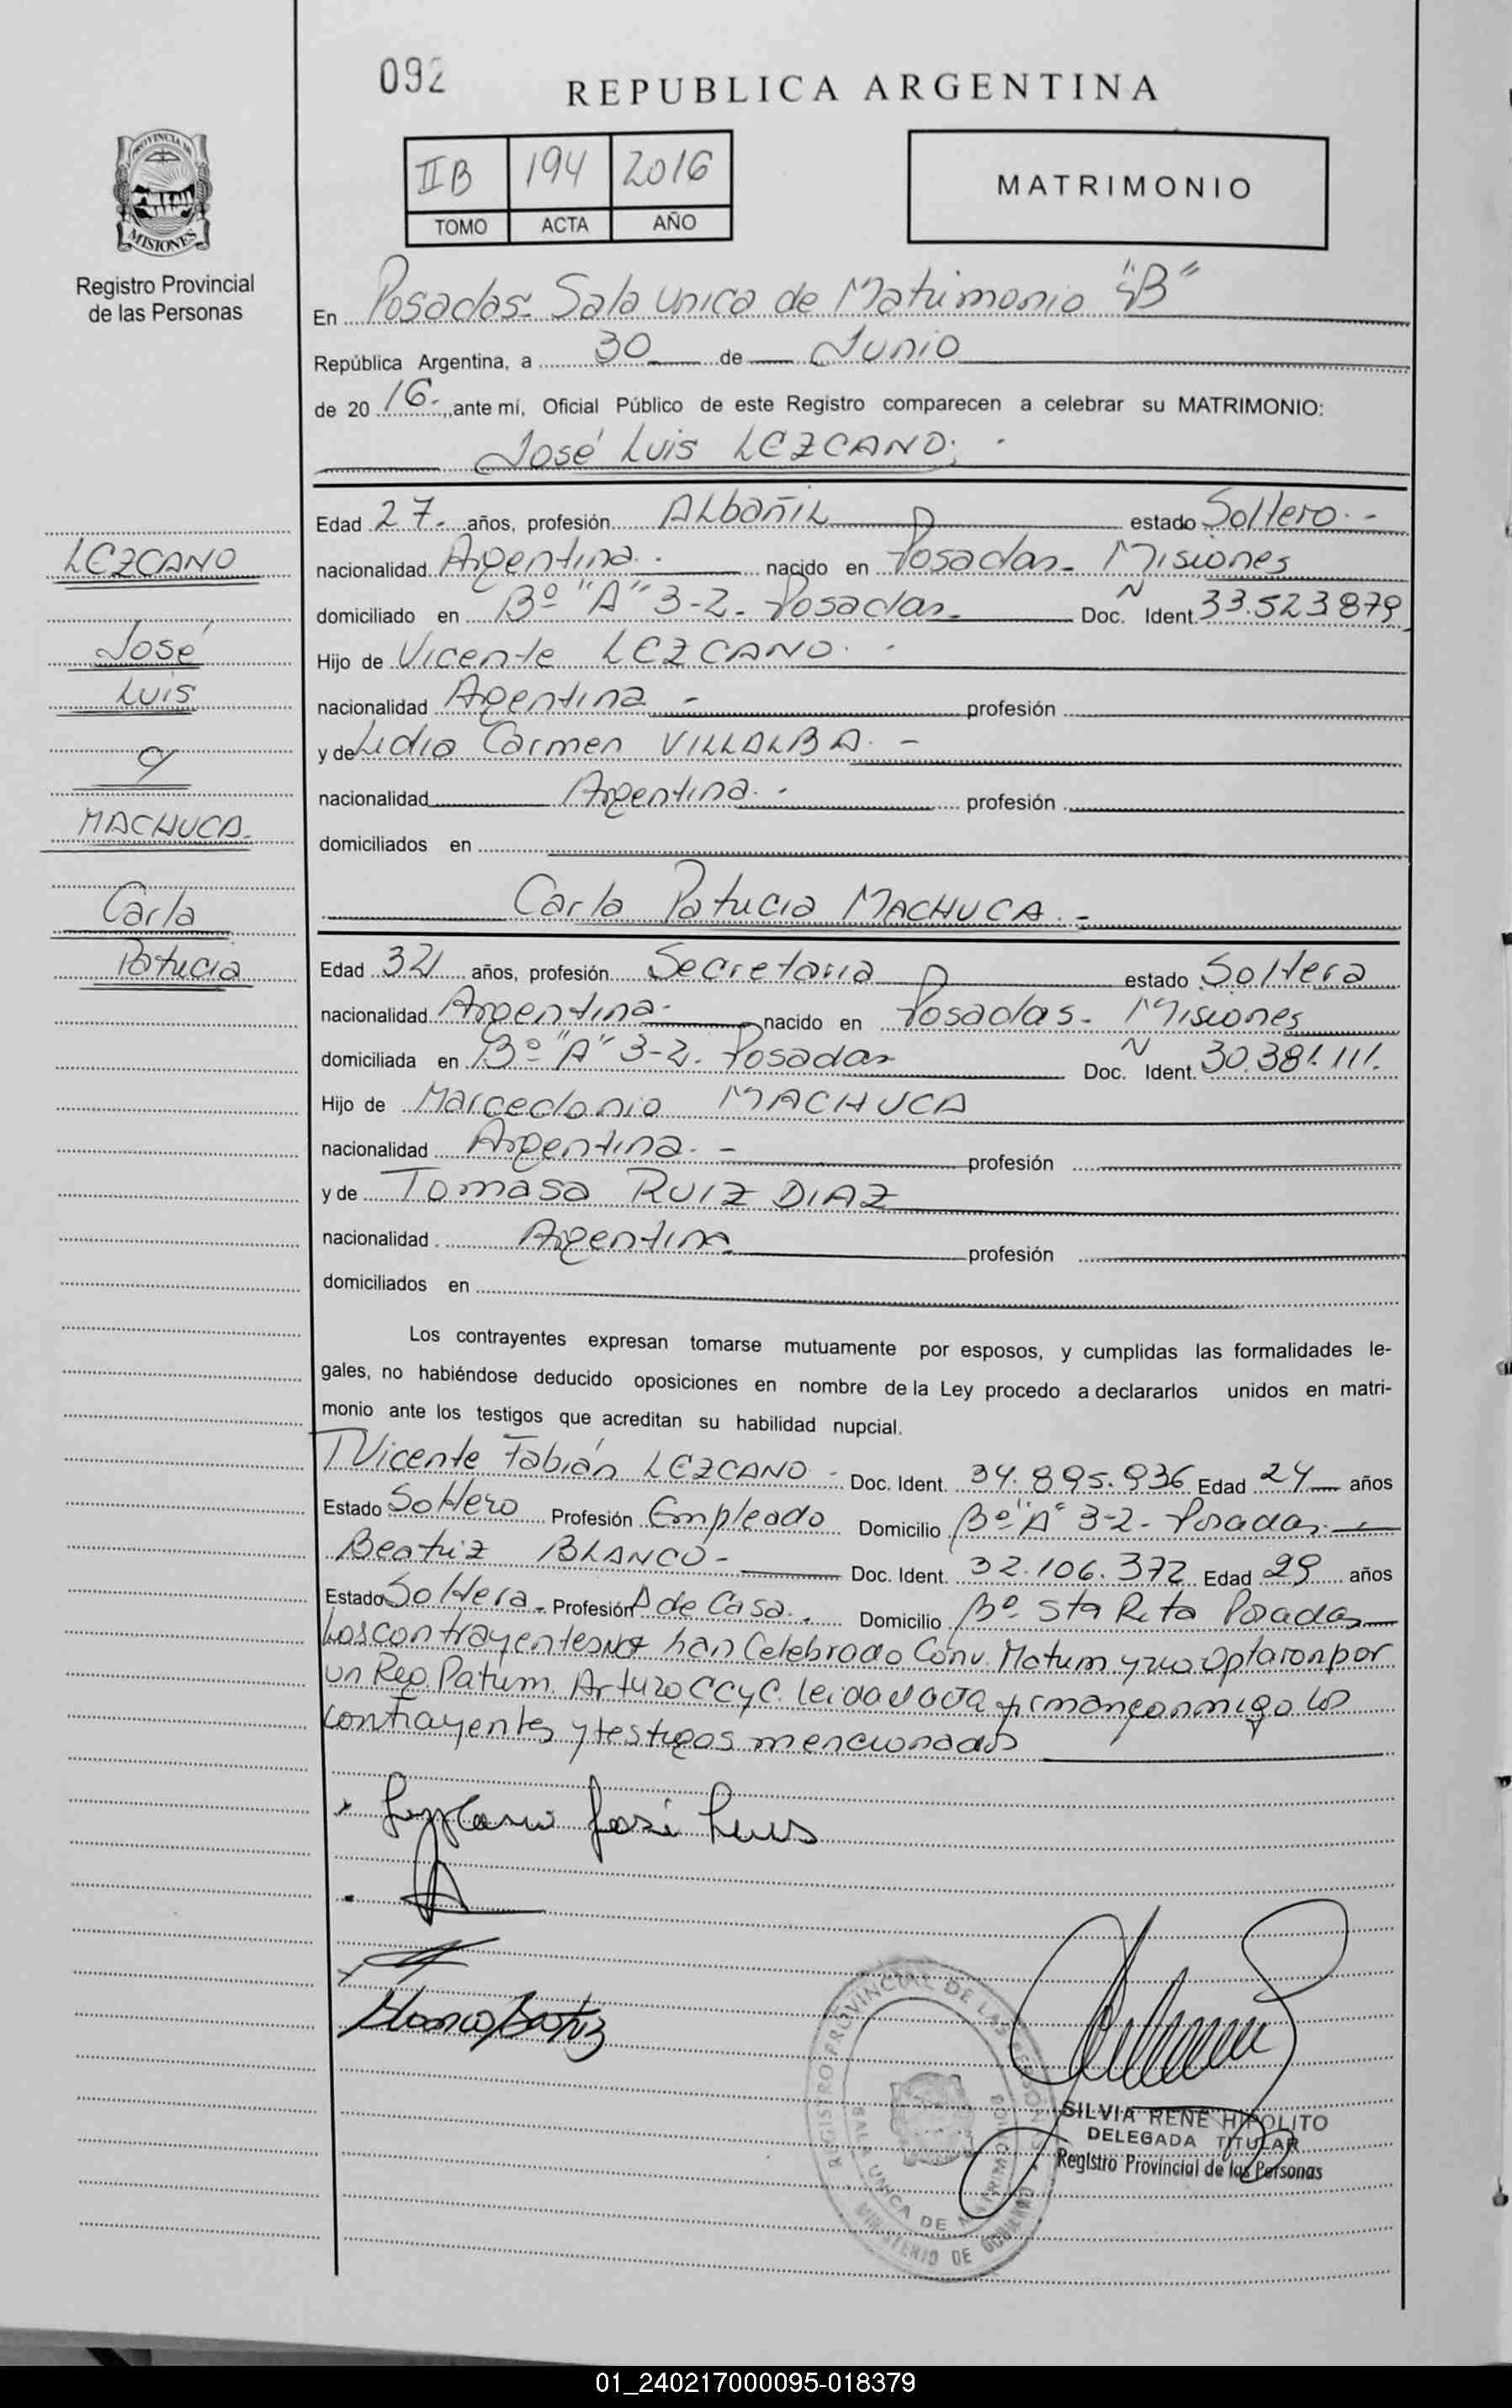 092
REPUBLICA ARGENTINA
II B 194 2016
TOMO ACTA AÑO
MATRIMONIO
PROVINCIA DE
MISIONES
Registro Provincial
de las Personas
En Posadas. Sala Unica de Matrimonio "B"
República Argentina, a 30 de Junio
de 20 16. ,,ante mí, Oficial Público de este Registro comparecen a celebrar su MATRIMONIO:
José Luis LEZCANO.
Edad 27. años, profesión Albañil estado Soltero.-
LEZCANO
nacionalidad Argentina. nacido en Posadas - Misiones
domiciliado en Bº "A" 3-2. Posadas Doc. N Ident. 33.523.879
José
Hijo de Vicente LEZCANO.
Luis
nacionalidad Argentina - profesión
y
y de Lidia Carmen VILLALBA. -
nacionalidad Argentina. - profesión
MACHUCA.
domiciliados en
Carla
Carla Patricia MACHUCA. -
Patricia
Edad 32 años, profesión Secretaria estado Soltera
nacionalidad Argentina. nacido en Posadas - Misiones
domiciliada en Bº "A" 3-2. Posadas Doc. N Ident. 30.381.111.
Hijo de Marcedonio MACHUCA
nacionalidad Argentina. - profesión
y de Tomasa RUIZ DIAZ
nacionalidad Argentina profesión
domiciliados en
Los contrayentes expresan tomarse mutuamente por esposos, y cumplidas las formalidades le-
gales, no habiéndose deducido oposiciones en nombre de la Ley procedo a declararlos unidos en matri-
monio ante los testigos que acreditan su habilidad nupcial.
T Vicente Fabián LEZCANO - Doc. Ident. 34.895.936 Edad 24 años
Estado Soltero Profesión Empleado Domicilio Bº "A" 3-2 - Posadas.
Beatriz BLANCO - Doc. Ident. 32.106.372 Edad 29 años
Estado Soltera - Profesión A de Casa. Domicilio Bº Sta Rita Posadas
Los contrayentes No han Celebrado Conv. Matrim y no Optaron por
un Reg. Patrim. Art 420 CCyC. leida el acta firman conmigo los
contrayentes y testigos mencionados
Lezcano José Luis
Blanco Beatriz
REGISTRO PROVINCIAL DE LAS PERSONAS
SALA UNICA DE MATRIMONIOS
MINISTERIO DE GOBIERNO
SILVIA RENÉ HIPOLITO
DELEGADA TITULAR
Registro Provincial de las Personas
01_240217000095-018379